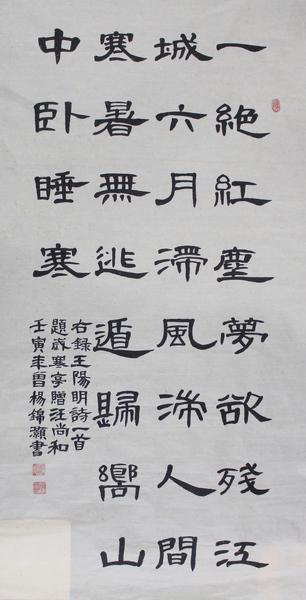 一絕紅塵夢欲殘江
城六月滯風湍人間
寒暑無逃遁歸嚮山
中卧睡寒
右錄王陽明詩一首
題歲寒亭贈汪尚和
壬寅年曾楊錦灝書